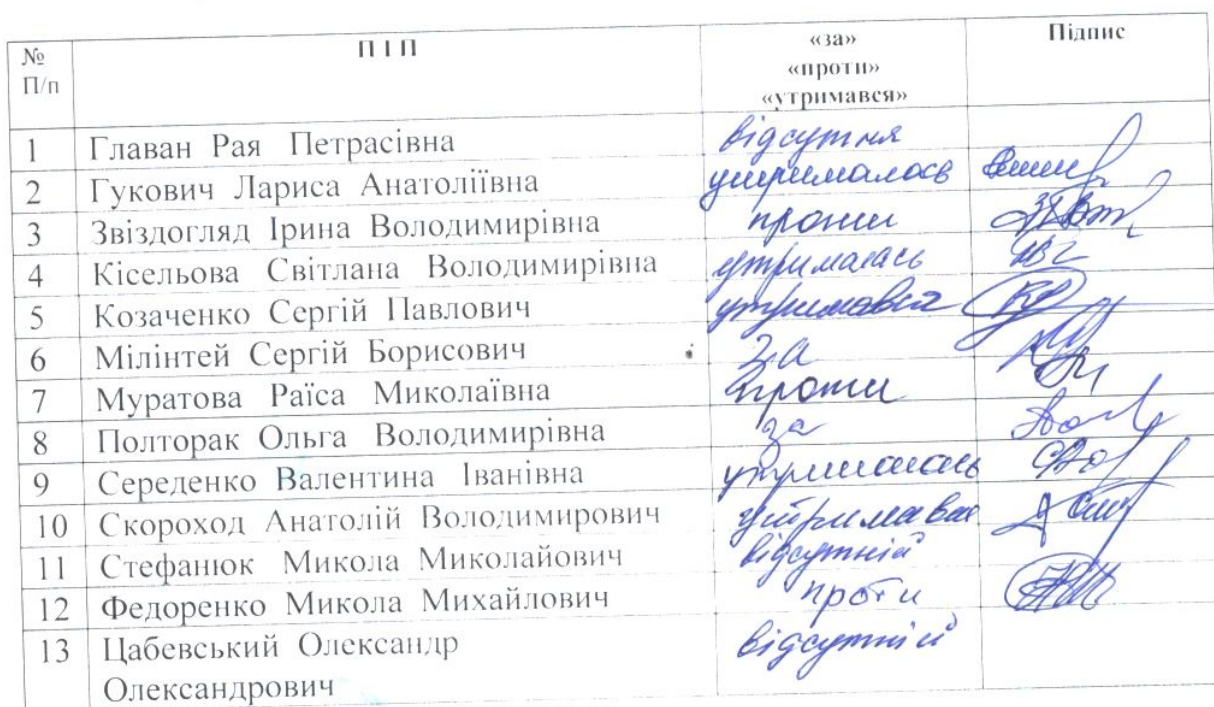 № П/п П І П «за» «проти» «утримався» Підпис
1 Главан Рая Петрасівна відсутня
2 Гукович Лариса Анатоліївна утрималась
3 Звіздогляд Ірина Володимирівна проти
4 Кісельова Світлана Володимирівна утрималась
5 Козаченко Сергій Павлович утримався
6 Мілінтей Сергій Борисович за
7 Муратова Раїса Миколаївна проти
8 Полторак Ольга Володимирівна за
9 Середенко Валентина Іванівна утрималась
10 Скороход Анатолій Володимирович утримався
11 Стефанюк Микола Миколайович відсутній
12 Федоренко Микола Михайлович проти
13 Цабевський Олександр відсутній
Олександрович